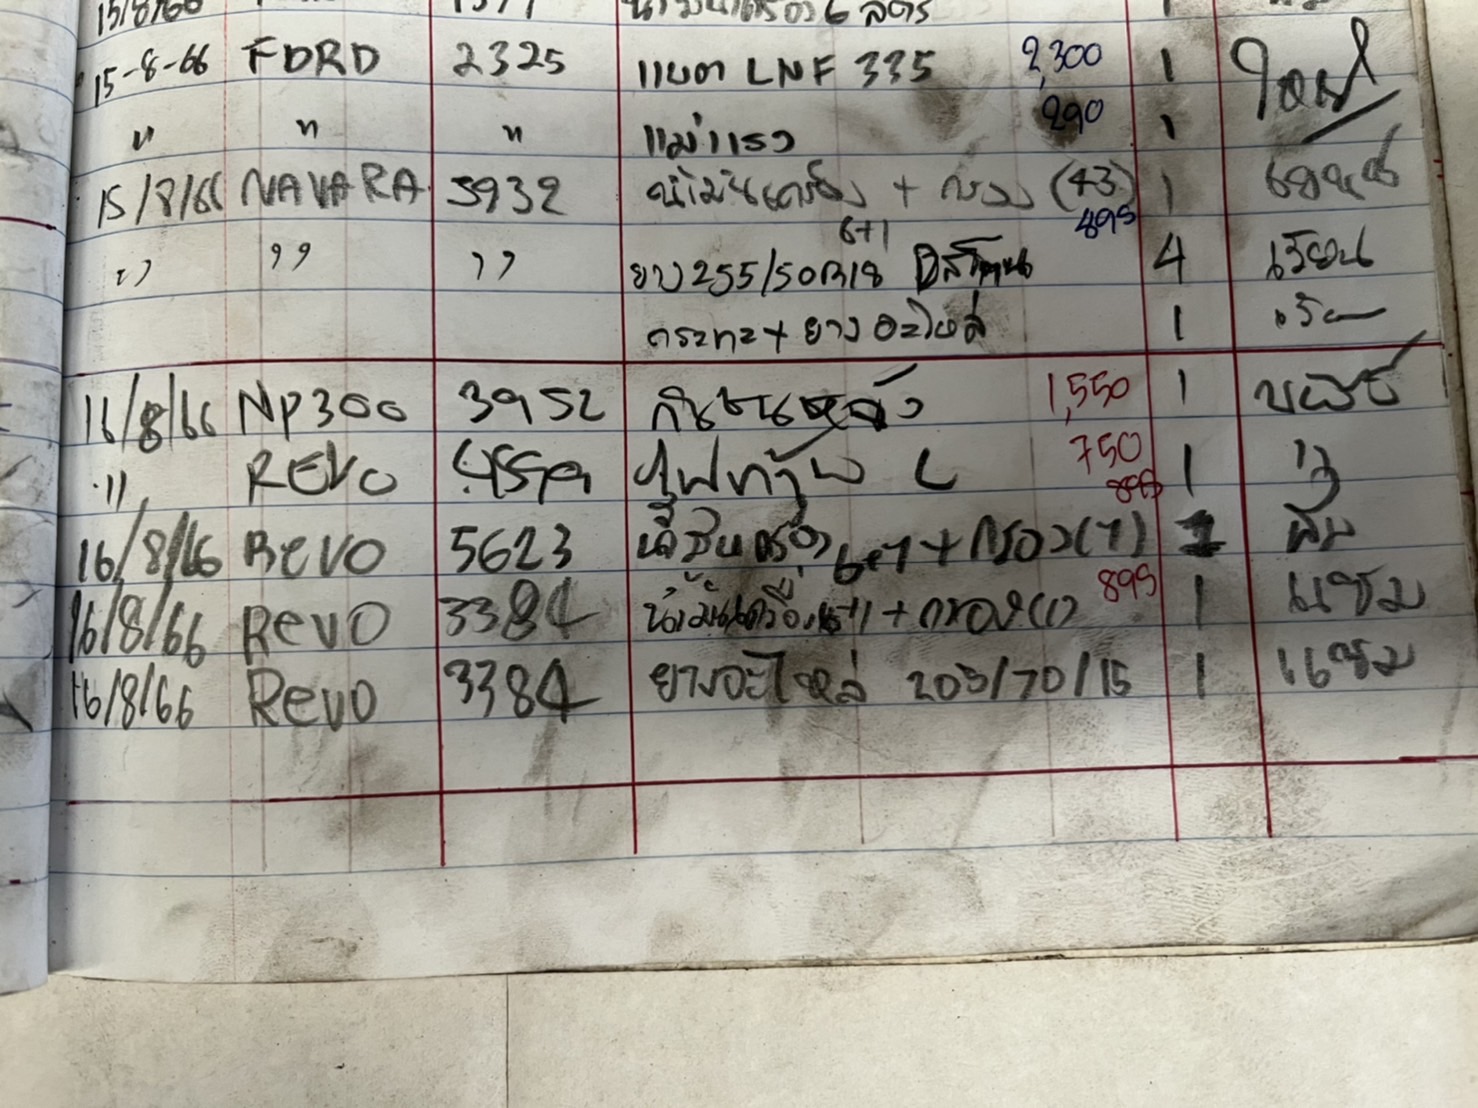 15/8/66 น้ำมันเครื่อง 6 ลิตร 1
15-8-66 FORD 2325 แบต LNF 335 2,300 1
" " " แม่แรง 290 1
15/8/66 NAVARA 3932 น้ำมันเครื่อง + กรอง (43) 1
6+1 895
" " " ยาง 255/50R18 4 เวียน
กระทะ + ยางอะไหล่ 1
16/8/66 NP300 3952 กันชนหลัง 1,550 1
" REVO ไฟท้าย L 750 1
895
16/8/66 Revo 5623 น้ำมันเครื่อง 6+1 + กรอง (1) 1
16/8/66 Revo 3384 น้ำมันเครื่อง 6+1 + กรอง (1) 895 1 แชม
16/8/66 Revo 3384 ยางอะไหล่ 205/70/15 1 แชม